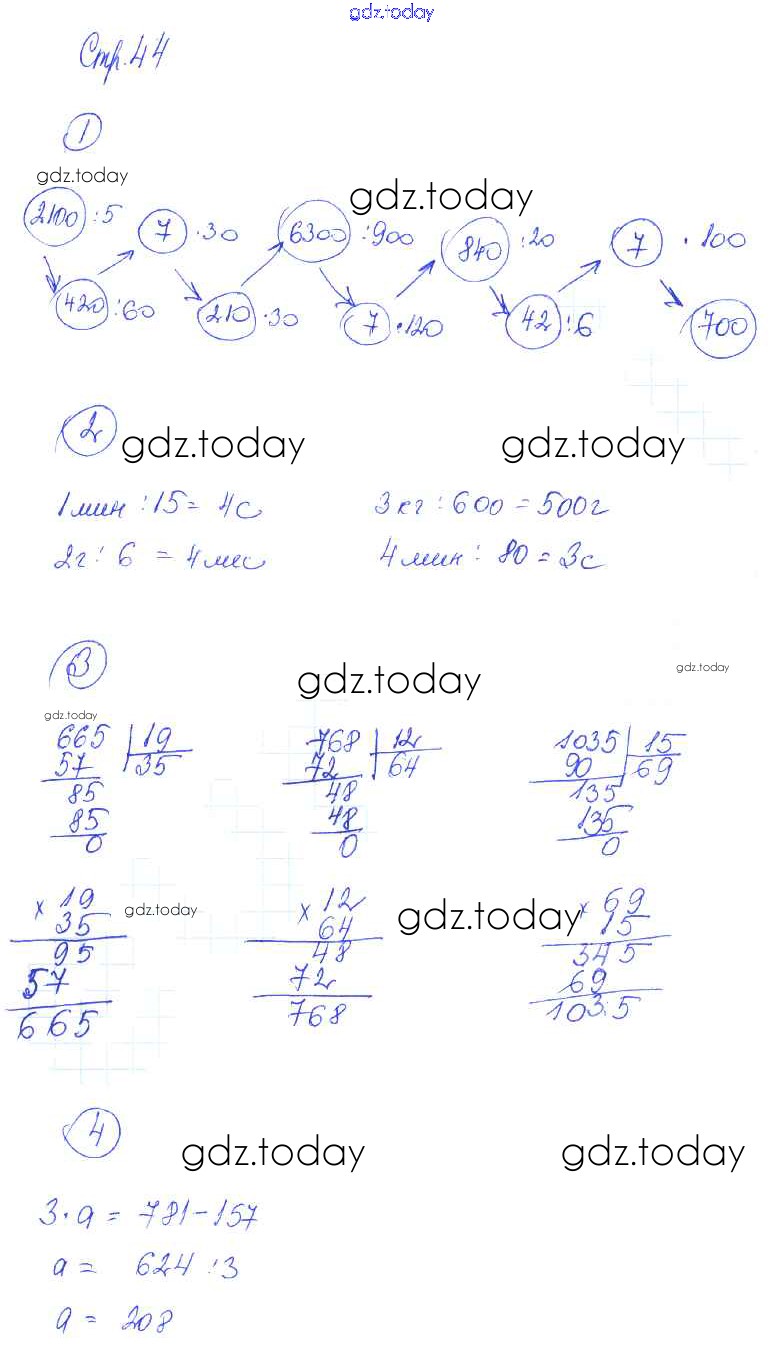 gdz.today
Стр. 44
1
gdz.today
gdz.today
2100 :5 7 ·30 6300 :900 840 :20 7 ·100
420 :60 210 ·30 7 ·120 42 :6 700
2
gdz.today gdz.today
1 мин :15 = 4с 3 кг : 600 = 500г
2г : 6 = 4 мес 4 мин : 80 = 3с
3
gdz.today gdz.today
gdz.today
665 19 768 12 1035 15
57 35 72 64 90 69
85 48 135
85 48 135
0 0 0
× 19 × 12 × 69
35 64 15
gdz.today gdz.today
95 48 345
57 72 69
665 768 1035
4
gdz.today gdz.today
3·a = 781-157
a = 624 :3
a = 208